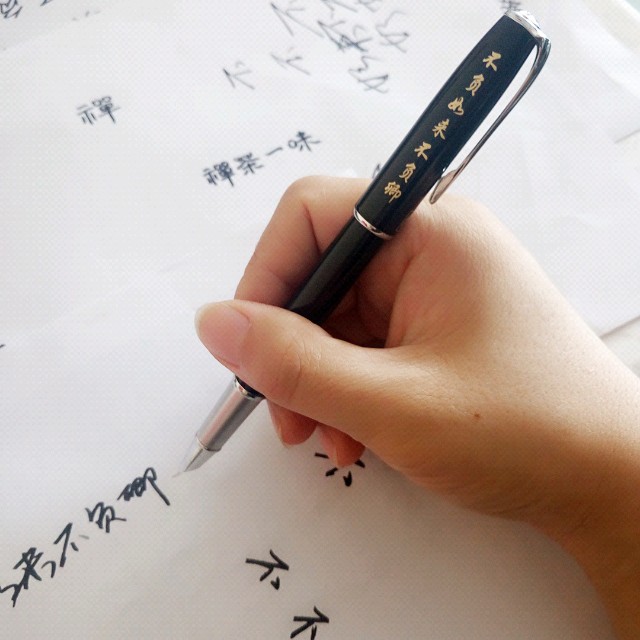 不
不
不
不
禅
禅茶一味
不负如来不负卿
来不负卿
不
不